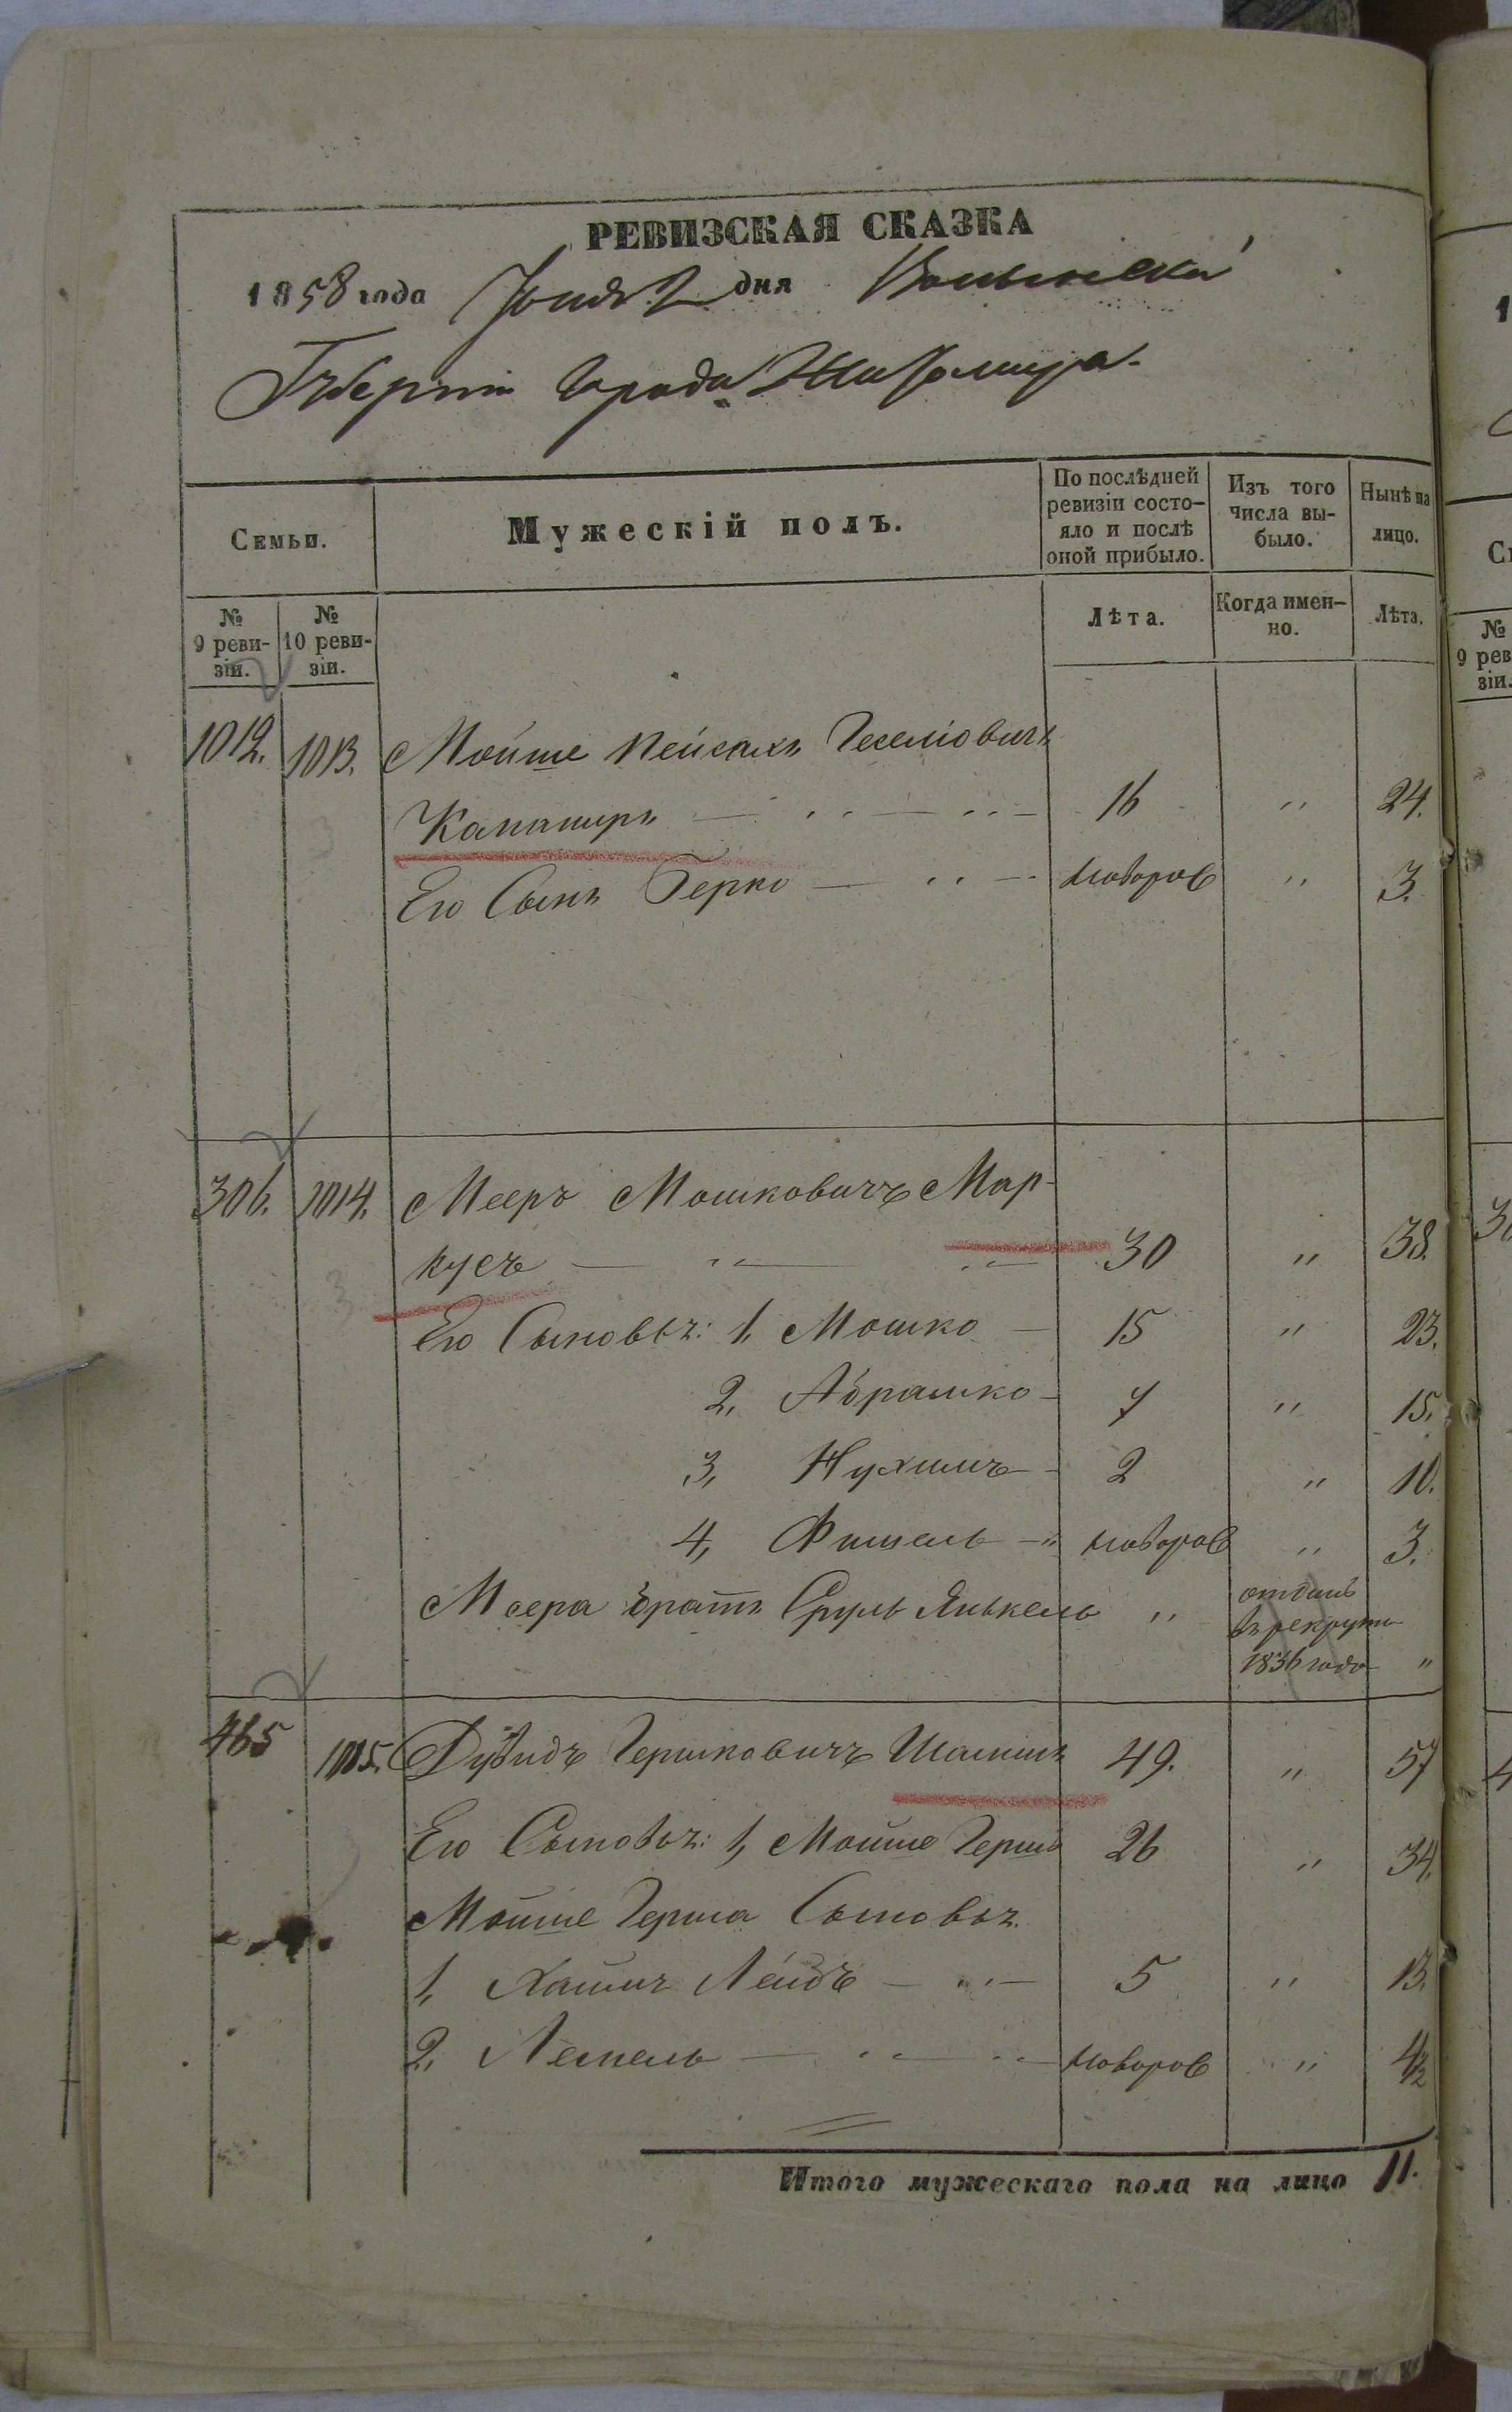 РЕВИЗСКАЯ СКАЗКА
1858 года Іюня 2 дня Волынской
Губерніи Города Житомира.
Семьи.
Мужескій полъ.
По послѣдней ревизіи состо-
яло и послѣ оной прибыло.
Изъ того числа вы-
было.
Нынѣ на лицо.
№ 9 реви-
зіи.
№ 10 реви-
зіи.
Лѣта.
Когда имен-
но.
Лѣта.
1012. 1013. Мойше Пейсахъ
Капаниръ — " — " — 16 " 24.
Его Сынъ Герко — " — новорож " 3.
306. 1014. Мееръ Мошковичъ Мар-
кусъ — " — " — 30 " 38.
Его Сыновья: 1, Мошко — 15 " 23.
2, Абрашко — 7 " 15.
3, Нухимъ — 2 " 10.
4, Фишель — " новорож " 3.
Меера братъ Сруль Янькель " отданъ
въ рекруты
1836 года "
465 1015. Дувидъ Гершковичъ 49. " 57
Его Сыновья: 1, Мойше Герша 26 " 34.
Мойше Герша Сыновья
1, Хаимъ Лейбъ — " — 5 " 13.
2, Лемель — " — " — новорож " 1/2
Итого мужескаго пола на лицо 11.